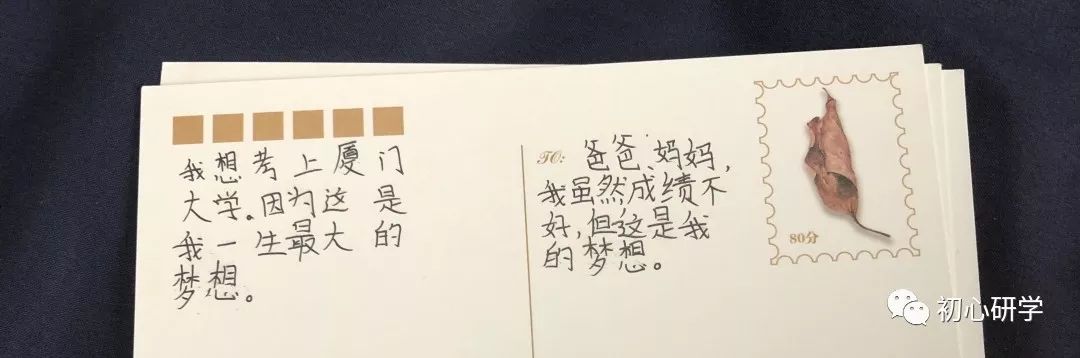 我想考上厦门
大学。因为这是
我一生最大的
梦想。
TO: 爸爸、妈妈,
我虽然成绩不
好,但这是我
的梦想。
80分
初心研学